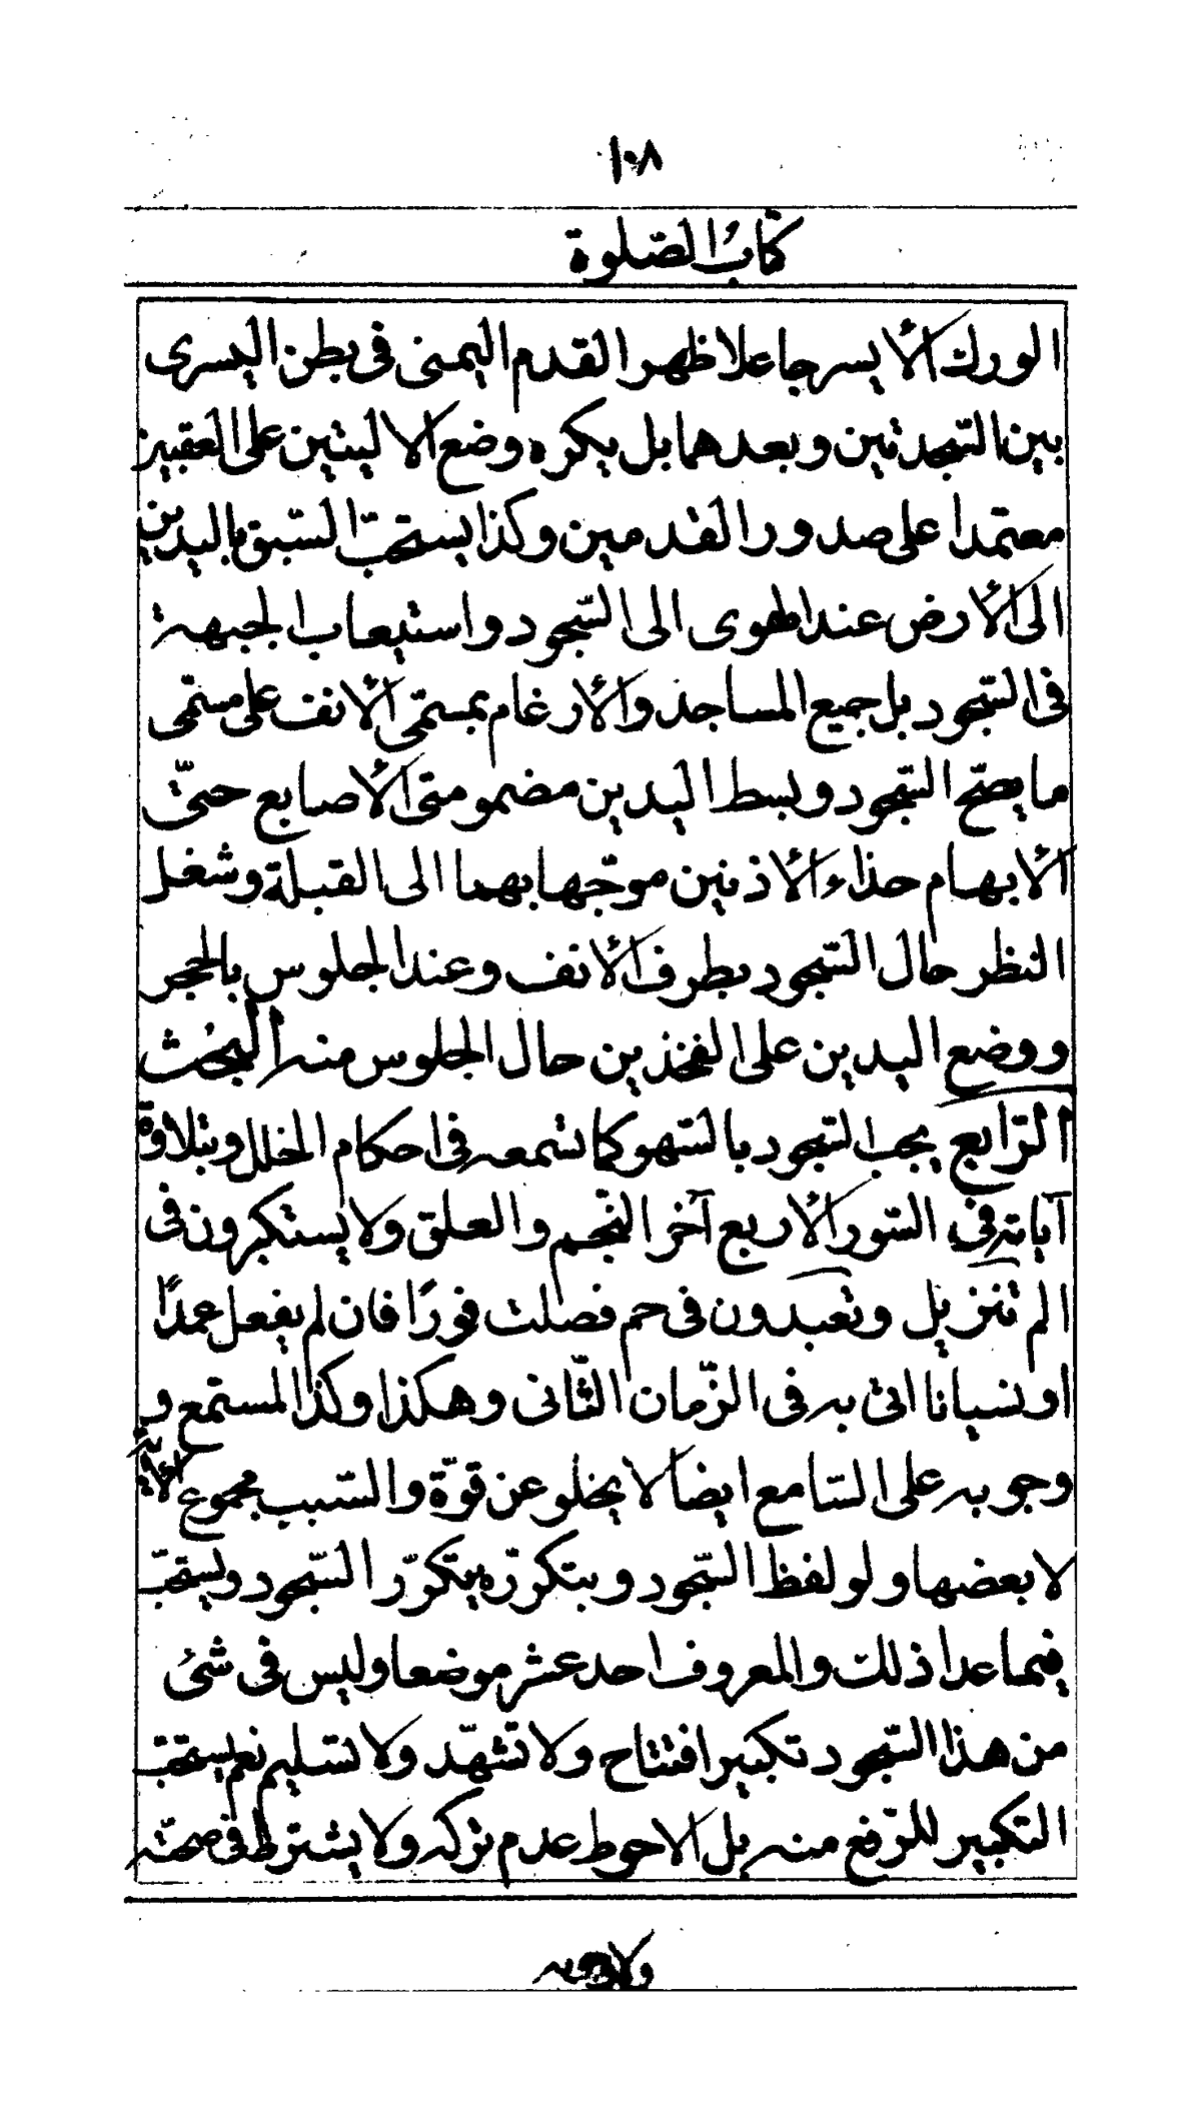 ١٠٨
كتابُ الصّلوة
الورك الأيسر جاعلا ظهر القدم اليمنى فى بطن اليسرى
بين السّجدتين وبعدهما بل يكره وضع الاليتين على العقبين
معتمدا على صدور القدمين وكذا يستحبّ السّبق باليدين
الى الأرض عند الهوى الى السّجود واستيعاب الجبهة
فى السّجود بل جميع المساجد والأرغام بمسمّى الأنف على مسمّى
ما يصحّ السّجود وبسط اليدين مضمومتى الأصابع حتّى
الأبهام حذاء الأذنين موجّها بهما الى القبلة وشغل
النظر حال السّجود بطرف الأنف وعند الجلوس بالحجر
ووضع اليدين على الفخذين حال الجلوس منه البحْث
الرّابع يجب السّجود بالسّهو كما تسمعه فى احكام الخلل وبتلاوة
آياته فى السّور الأربع آخر النّجم والعلق ولا يستكبرون فى
الم تنزيل وتعبدون فى حم فصلت فورًا فان لم يفعل عمدًا
او نسيانا اتى به فى الزّمان الثّانى وهكذا وكذا المستمع و
وجوبه على السّامع ايضا لا يخلو عن قوّة والسّبب مجموع الأية
لا بعضها ولو لفظ السّجود وبتكرّره يتكرّر السّجود ويستحبّ
فيما عدا ذلك والمعروف احد عشر موضعا وليس فى شئ
من هذا السّجود تكبير افتتاح ولا تشهّد ولا تسليم نعم يستحبّ
التكبير للرّفع منه بل الاحوط عدم تركه ولا يشترط فى صحّته